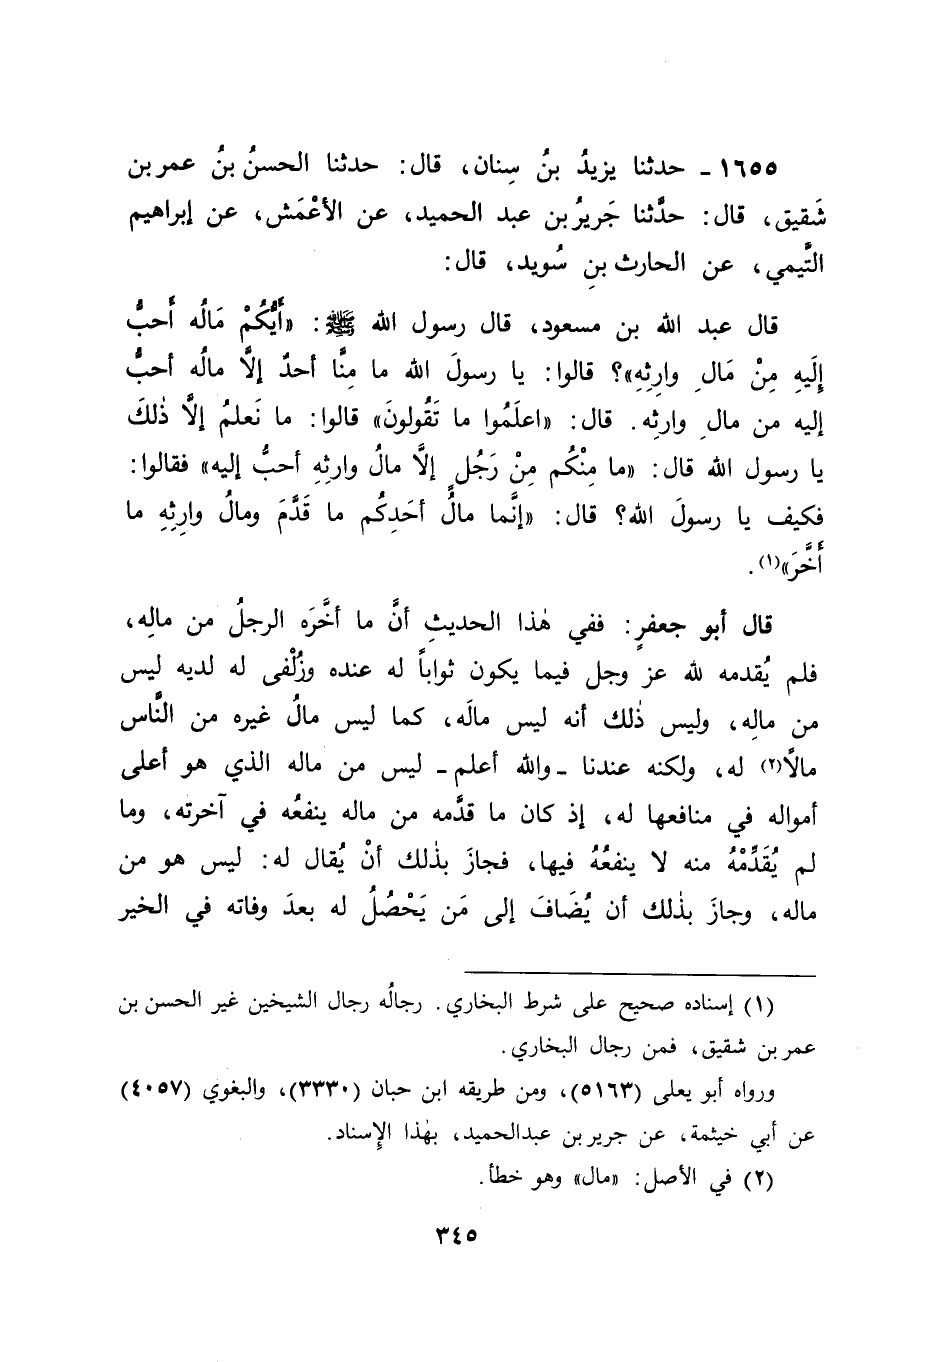 ١٦٥٥ - حدثنا يزيدُ بنُ سِنان، قال: حدثنا الحسنُ بنُ عمر بن
شَقيق، قال: حدَّثنا جَريرُ بن عبد الحميد، عن الأعْمَش، عن إبراهيم
التَّيمي، عن الحارث بنِ سُويد، قال:
قال عبد الله بن مسعود، قال رسول الله ﷺ: «أَيُّكُمْ مَالُه أَحبُّ
إِلَيهِ مِنْ مَالِ وارِثِهِ»؟ قالوا: يا رسولَ الله ما مِنَّا أحدٌ إلَّا مالُه أحبُّ
إليه من مالِ وارثِه. قال: «اعلَمُوا ما تَقُولونَ» قالوا: ما نَعلمُ إلَّا ذٰلكَ
يا رسول الله قال: «ما مِنْكُم مِنْ رَجُلٍ إلَّا مالُ وارِثِهِ أحبُّ إليه» فقالوا:
فكيف يا رسولَ الله؟ قال: «إنَّما مالُ أحَدِكُم ما قَدَّمَ ومالُ وارِثِهِ ما
أَخَّرَ»(١).
قال أبو جعفرٍ: ففي هٰذا الحديثِ أنَّ ما أخَّرَه الرجلُ من مالِه،
فلم يُقدمه لله عز وجل فيما يكون ثواباً له عنده وزُلْفى له لديه ليس
من مالِه، وليس ذٰلك أنه ليس مالَه، كما ليس مالُ غيره من النَّاس
مالًا(٢) له، ولكنه عندنا - والله أعلم - ليس من ماله الذي هو أعلى
أمواله في منافعها له، إذ كان ما قدَّمه من ماله ينفعُه في آخرته، وما
لم يُقَدِّمْهُ منه لا ينفعُهُ فيها، فجازَ بذٰلك أنْ يُقال له: ليس هو من
ماله، وجازَ بذٰلك أن يُضَافَ إلى مَن يَحْصُلُ له بعدَ وفاته في الخير
(١) إسناده صحيح على شرط البخاري. رجالُه رجال الشيخين غير الحسن بن
عمر بن شقيق، فمن رجال البخاري.
ورواه أبو يعلى (٥١٦٣)، ومن طريقه ابن حبان (٣٣٣٠)، والبغوي (٤٠٥٧)
عن أبي خيثمة، عن جرير بن عبدالحميد، بهٰذا الإِسناد.
(٢) في الأصل: «مال» وهو خطأ.
٣٤٥